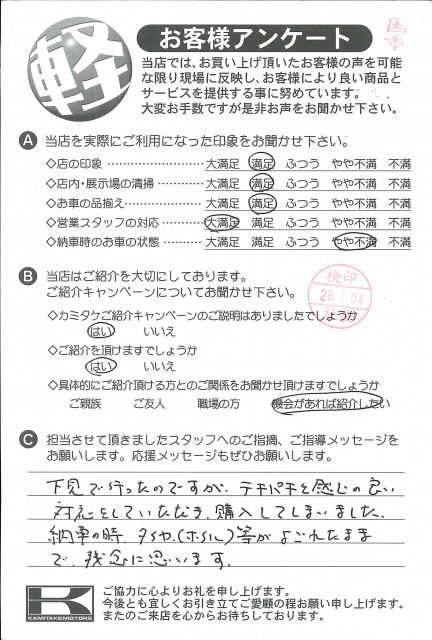 軽
お客様アンケート
当店では、お買い上げ頂いたお客様の声を可能
な限り現場に反映し、お客様により良い商品と
サービスを提供する事に努めています。
大変お手数ですが是非お声をお聞かせ下さい。
A 当店を実際にご利用になった印象をお聞かせ下さい。
◇店の印象 ………………… 大満足 満足 ふつう やや不満 不満
◇店内・展示場の清掃 ………… 大満足 満足 ふつう やや不満 不満
◇お車の品揃え ………………… 大満足 満足 ふつう やや不満 不満
◇営業スタッフの対応 ………… 大満足 満足 ふつう やや不満 不満
◇納車時のお車の状態 ………… 大満足 満足 ふつう やや不満 不満
B 当店はご紹介を大切にしてあります。
ご紹介キャンペーンについてお聞かせ下さい。
検印
◇カミタケご紹介キャンペーンのご説明はありましたでしょうか
はい いいえ
◇ご紹介を頂けますでしょうか
はい いいえ
◇具体的にご紹介頂ける方とのご関係をお聞かせ頂けますでしょうか
ご親族 ご友人 職場の方 機会があれば紹介したい
C 担当させて頂きましたスタッフへのご指摘、ご指導メッセージを
お願いします。応援メッセージもぜひお願いします。
下見で行ったのですが、テキパキと感じの良い
対応をしていただき、購入してしまいました。
納車の時、タイヤ、(ホイル)等がよごれたまま
で、残念に思います。
K
KAMITAKEMOTORS
ご協力に心よりお礼を申し上げます。
今後とも宜しくお引き立てご愛顧の程お願い申し上げます。
またのご来店を心からお待ちしております。